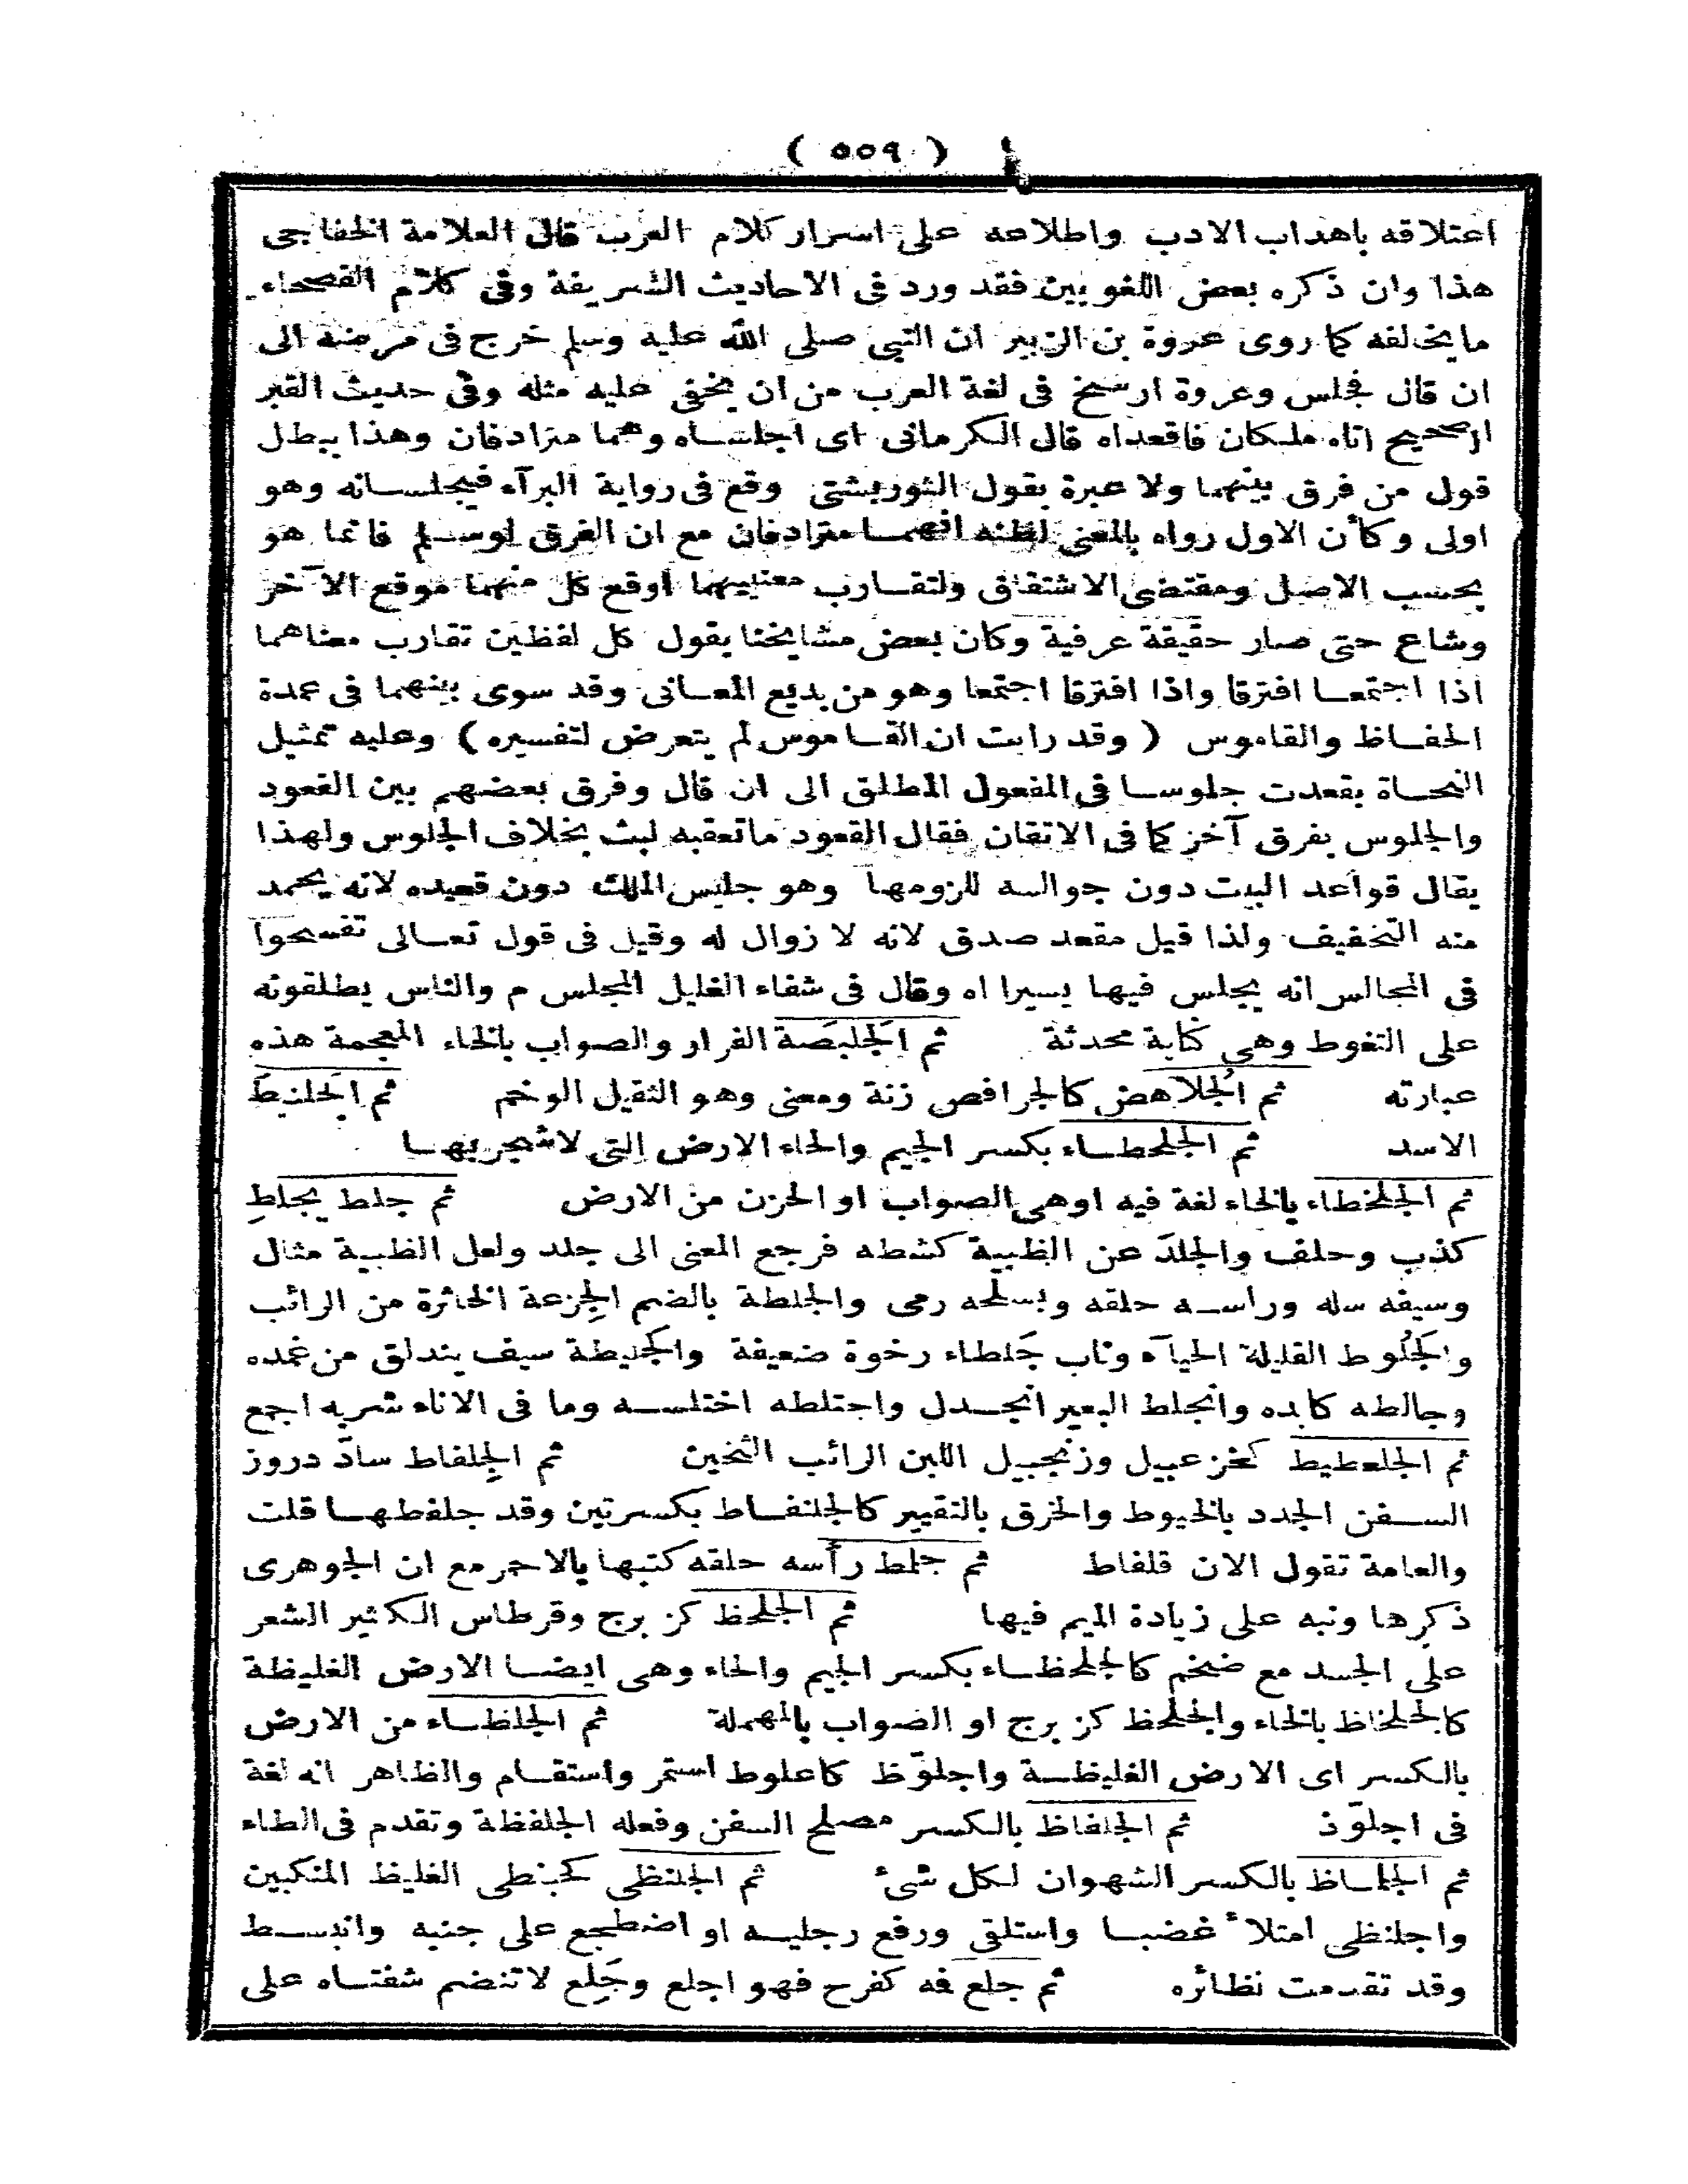 ( ٥٥٩ )
اعتلاقه باهداب الادب واطلاعه على اسرار كلام العرب قال العلامة الخفاجى
هذا وان ذكره بعض اللغويين فقد ورد فى الاحاديث الشريفة وفى كلام الفصحاء
ما يخالفه كما روى عروة بن الزبير ان النبى صلى الله عليه وسلم خرج فى مرضه الى
ان قال فجلس وعروة ارسخ فى لغة العرب من ان يخفى عليه مثله وفى حديث القبر
الصحيح اتاه ملكان فاقعداه قال الكرمانى اى اجلساه وهما مترادفان وهذا يبطل
قول من فرق بينهما ولا عبرة بقول التوربشتى وقع فى رواية البرآء فيجلسانه وهو
اولى وكأن الاول رواه بالمعنى لظنه انهما مترادفان مع ان الفرق لو سلم فانما هو
بحسب الاصل ومقتضى الاشتقاق ولتقارب معنييهما اوقع كل منهما موقع الآخر
وشاع حتى صار حقيقة عرفية وكان بعض مشايخنا يقول كل لفظين تقارب معناهما
اذا اجتمعا افترقا واذا افترقا اجتمعا وهو من بديع المعانى وقد سوى بينهما فى عمدة
الحفاظ والقاموس ( وقد رايت ان القاموس لم يتعرض لتفسيره ) وعليه تمثيل
النحاة بقعدت جلوسا فى المفعول المطلق الى ان قال وفرق بعضهم بين القعود
والجلوس بفرق آخر كما فى الاتقان فقال القعود ما تعقبه لبث بخلاف الجلوس ولهذا
يقال قواعد البيت دون جوالسه للزومها وهو جليس الملك دون قعيده لانه يحمد
منه التخفيف ولذا قيل مقعد صدق لانه لا زوال له وقيل فى قول تعالى تفسحوا
فى المجالس انه يجلس فيها يسيرا اه وقال فى شفاء الغليل المجلس م والناس يطلقونه
على التغوط وهى كناية محدثة ثم الجَلبَصَة الفرار والصواب بالخاء المعجمة هذه
عبارته ثم الجُلاهض كالجرافص زنة ومعنى وهو الثقيل الوخم ثم الجَلنبَط
الاسد ثم الجلحطاء بكسر الجيم والحاء الارض التى لا شجر بها
ثم الجلخطاء بالخاء لغة فيه اوهى الصواب او الحزن من الارض ثم جلط يجلِط
كذب وحلف والجلدَ عن الظبية كشطه فرجع المعنى الى جلد ولعل الظبية مثال
وسيفه سله وراسه حلقه وبسلحه رمى والجلطة بالضم الجِزعة الخاثرة من الرائب
والجَلُوط القليلة الحيآء وناب جَلطاء رخوة ضعيفة والجَليطة سيف يندلق من غمده
وجالطه كابده وانجلط البعير انجدل واجتلطه اختلسه وما فى الاناء شربه اجمع
ثم الجلعطيط كخزعبيل وزنجبيل اللبن الرائب الثخين ثم الجِلفاط سادّ دروز
السفن الجدد بالخيوط والخرق بالتقيير كالجلنفاط بكسرتين وقد جلفطها قلت
والعامة تقول الان قلفاط ثم جلمط رأسه حلقه كتبها بالاحمر مع ان الجوهرى
ذكرها ونبه على زيادة الميم فيها ثم الجلحظ كزبرج وقرطاس الكثير الشعر
على الجسد مع ضخم كالجلحظاء بكسر الجيم والحاء وهى ايضا الارض الغليظة
كالجلخاظ بالخاء والجلخظ كزبرج او الصواب بالمهملة ثم الجلظاء من الارض
بالكسر اى الارض الغليظة واجلوّظ كاعلوط استمر واستقام والظاهر انه لغة
فى اجلوّذ ثم الجلفاظ بالكسر مصلح السفن وفعله الجلفظة وتقدم فى الطاء
ثم الجلماظ بالكسر الشهوان لكل شىء ثم الجلنظى كحبنطى الغليظ المنكبين
واجلنظى امتلأ غضبا واستلقى ورفع رجليه او اضطجع على جنبه وانبسط
وقد تقدمت نظائره ثم جلع فه كفرح فهو اجلع وجَلِع لا تنضم شفتاه على